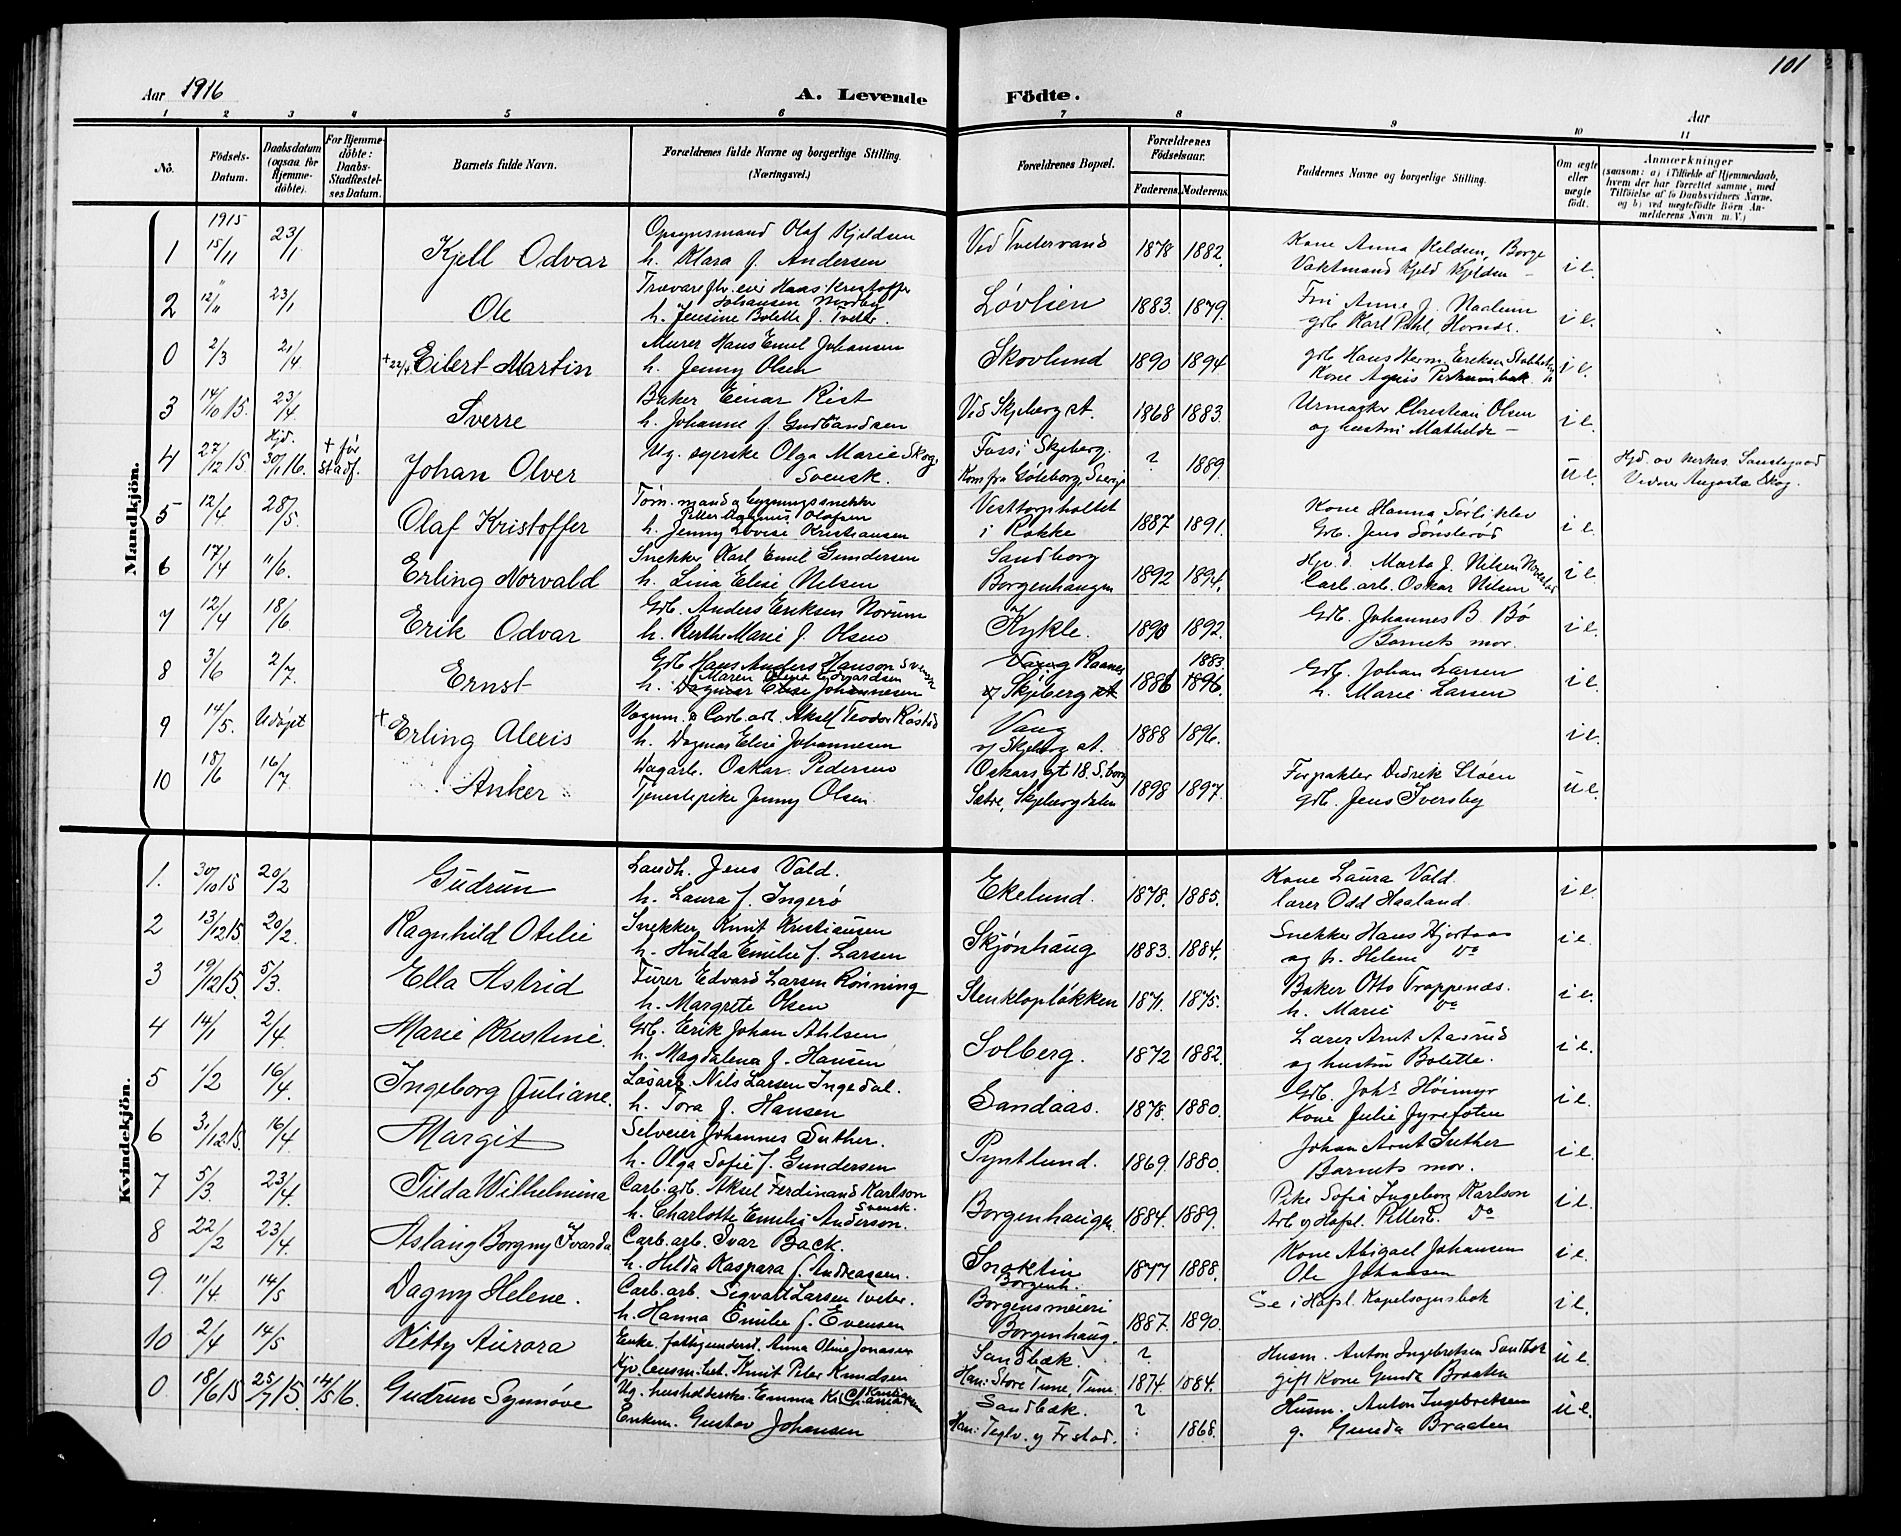 101
Aar 1916
A. Levende Födte.
Aar
1 2 3 4 5 6 7 8 9 10 11
No.
Födsels-Datum.
Daabsdatum (ogsaa for Hjemme-döbte).
For Hjemme-döbte: Daabs-Stadfæstel-ses Datum.
Barnets fulde Navn.
Forældrenes fulde Navne og borgerlige Stilling.
(Næringsvei.)
Forældrenes Bopæl.
Forældrenes Födselsaar.
Faderens. Moderens.
Faddernes Navne og borgerlige Stilling.
Om ægte eller uægte födt.
Anmærkninger
(saasom: a) i Tilfælde af Hjemmedaab, hvem der har forrettet samme, med Tilföielse af to Daabsvidners Navne, og b) ved uegtefödte Börn An-melderens Navn m. V.)
Mandkjön.
1915
1 15/11 23/1 Kjell Odvar Opsynsmand Olaf Kjeldsen Ved Tvetervand 1878 1882. Kone Anna Kjeldsen, Borge i e.
h. Klara f. Andersen Vaktmand Kjeld Kjeldsen —
2 12/11 23/1 Ole Hans Kristoffer Løvlien 1883. 1879. i e.
Johansen Norby
h. Jensine Bolette f. Tveter. gdb. Karl Hornæs.
0 2/3 21/4 +22/4 Eilert Martin Murer Hans Emil Johansen Skovlund 1890 1894 gdb. Hans Herm. Eriksen i e.
h. Jenny Olsen Kone Agnes
3 14/10 15. 23/4 Sverre Baker Einar Rist Ved Skjeberg st. 1868 1883. Urmaker Christian Olsen i e.
h. Johanne f. Gudbrandsen og hustru Mathilde —
4 27/12 15 Hjd. 30/1 16. + før stadf. Johan Olver Ug. syerske Olga Marie Skog, Foss i Skjeberg. ? 1889. u e. Hjd. av Sandsgaard
Svensk. Kom fra Göteborg, Sverige Vidner Augusta Skog.
5 12/4 28/5. Olaf Kristoffer Tøm.mand og bygningssnekker Vesttorpholtet 1887 1891. Kone Hanna Sørliklev i e.
Petter Magnus Olafsen
h. Jenny Lovise Kristiansen i Rokke Gdb. Jens Sønsterød
6 17/4 11/6. Erling Norvald Snekker Karl Emil Gundersen Sandborg 1892 1894. Marta J. Nilsen i e.
h. Lina Elise Nilsen Borgenhaugen Carb. arb. Oskar Nilsen
7 12/4 18/6 Erik Odvar Gdb. Anders Eriksen Norum Kykle. 1890 1892. Gdb. Johannes B. Bø i e.
h. Berthe Marie f. Olsen Barnets mor.
8 3/6 2/7. Ernst Gdb. Hans Anders Hanson Svensk Vang Raanes 1886 1883. 1896. Gdb. Johan Larsen i e.
Maren Oline Edvardsen
h. Dagmar Elise Johannesen v/ Skjeberg st. h. Marie Larsen
9 14/5. Udøpt + Erling Alexis Vognm. & Carb. arb. Aksel Teodor Røstad Vang 1888 1896. i e.
h. Dagmar Elise Johannesen v/ Skjeberg st.
10 18/6 16/7 Anker Dagarb. Oskar Pedersen Oskarsgt 18. S.borg 1898 1897. Forpakter Didrik Støen u e.
Tjenestepike Jenny Olsen Sætre, Skjebergdalen gdb. Jens Iversby
Kvindekjön.
1. 30/10 15 20/2 Gudrun Landh. Jens Vold. Ekelund. 1878. 1885. Kone Laura Vold. i e.
h. Laura f. Ingerø lærer Odd Haaland.
2 13/12 15 20/2. Ragnhild Otilie Snekker Knut Kristiansen Skjønhaug 1883. 1884. Snekker Hans Hjortaas i e.
h. Hulda Emilie f. Larsen og h. Helene Do
3 19/12 15. 5/3. Ella Astrid Furer Edvard Larsen Rønning Stenkloplökken 1871. 1875. Baker Otto Trappenæs. i e.
h. Margrete Olsen h. Marie Do
4 14/1 2/4. Marie Kristine. Gdb. Erik Johan Ahlsen Solberg. 1872 1882. Lærer Arnt Aasrud i e.
h. Magdalena f. Hansen og hustru Bolette.
5 1/2 16/4. Ingeborg Juliane. Løsarb. Nils Larsen Ingedal. Sandaas. 1878. 1880. Gdb. Johs Høimyr i e.
h. Tora f. Hansen Kone Julie Fyrefoten
6 31/12 15. 16/4 Margit Selveier Johannes Suther. Pyntlund. 1869. 1880. Johan Arnt Suther i e.
h. Olga Sofie f. Gundersen Barnets mor.
7 5/3. 23/4. Tilda Wilhelmina Carb. arb. Aksel Ferdinand Karlson Borgenhaugen 1884. 1889. Pike Sofia Ingeborg Karlson i e.
Svensk.
h. Charlotte Emilia Anderson. Arb. v/ Hafsl. Petter Do
8 22/2 23/4. Aslaug Borgny Ivarda Carb. arb. Ivar Back. Snaktin 1877 1888. Kone Abigael Johansen i e.
h. Hilda Kaspara f. Andreassen. Borgenh. Ole Johansen
9. 11/4. 14/5 Dagny Helene. Carb. arb. Sigvart Larsen Tveter. Borgensmeieri 1887. 1890. Se i Hafsl. Kapelsognsbok i e.
h. Hanna Emilie f. Evensen Borgenhaug.
10 2/4 14/5 Kitty Aurora Enke, fattigunderst. Anna Oline Jonassen Sandbæk. ? Husm. Anton Ingebretsen Sandbæk u e.
Knut Peter Knudsen Han: Store Tune, Tune. 1874. 1884. gift Kone Gunda Braaten
0 18/6 15 25/7 15. 14/5 16. Gudrun Synnøve Ug. husholderske Emma Sandbæk. ? Husm. Anton Ingebretsen u e.
Enkem. Gustav Johansen Han: Teglv. v/ Fr.stad. 1868. g. Gunda Braaten